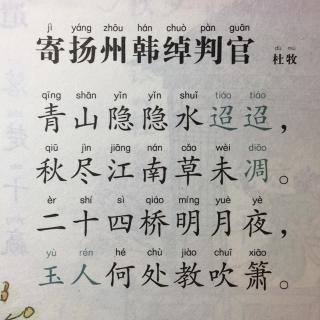 jì yáng zhōu hán chuò pàn guān
寄扬州韩绰判官
dù mù
杜牧
qīng shān yǐn yǐn shuǐ tiáo tiáo
青山隐隐水迢迢，
qiū jìn jiāng nán cǎo wèi diāo
秋尽江南草未凋。
èr shí sì qiáo míng yuè yè
二十四桥明月夜，
yù rén hé chù jiào chuī xiāo
玉人何处教吹箫。